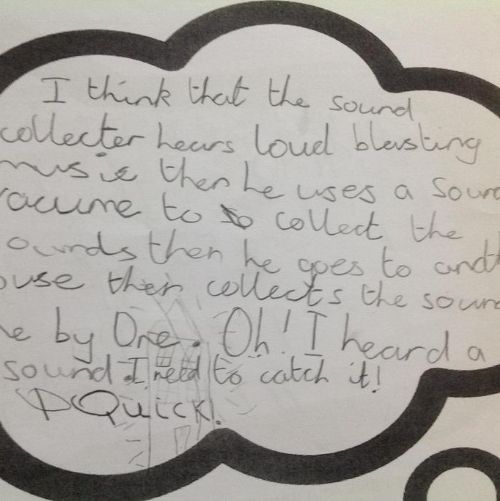 I think that the sound
collecter hears loud blasting
music then he uses a sound
vacume to collect the
ounds then he goes to anoth
ouse then collects the soun
ne by One. Oh! I heard a
sound. I need to catch it!
Quick!